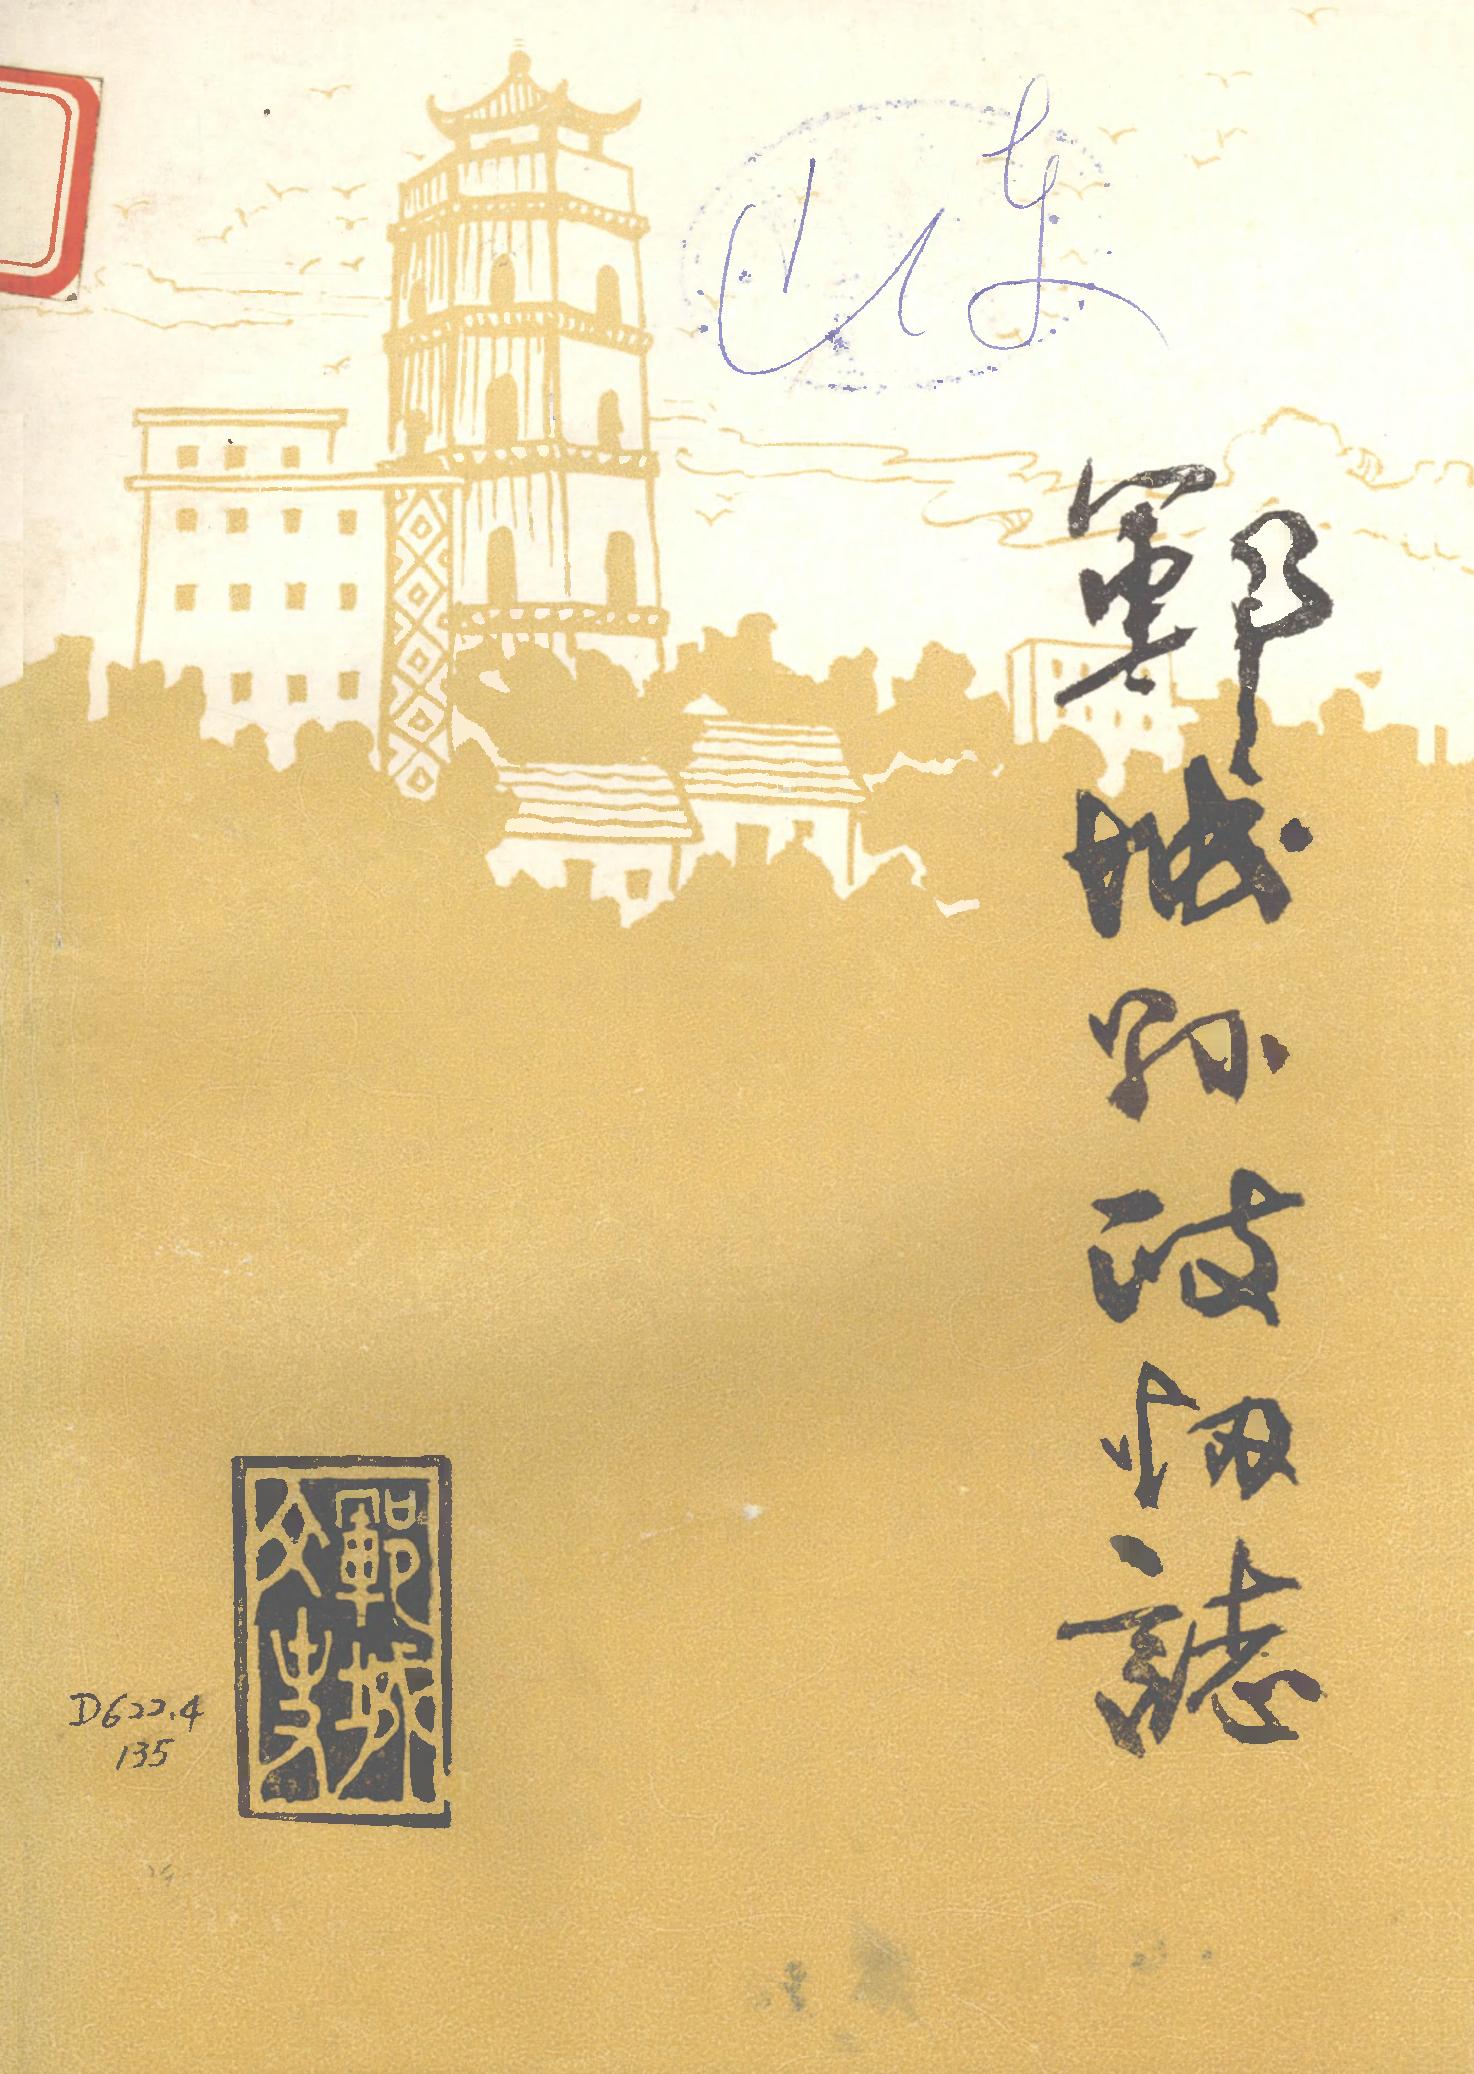 山东
鄆城縣政协誌
鄆城
文史
D622.4
135